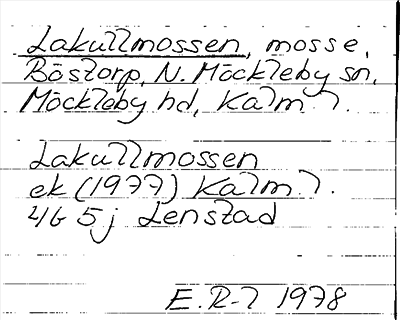 Lakullmossen, mosse,
Böstorp, N. Möckleby sn,
Möckleby hd, Kalm. l.
Lakullmossen
ek (1977) Kalm. l.
4G 5j Lenstad
E. R-l 1978